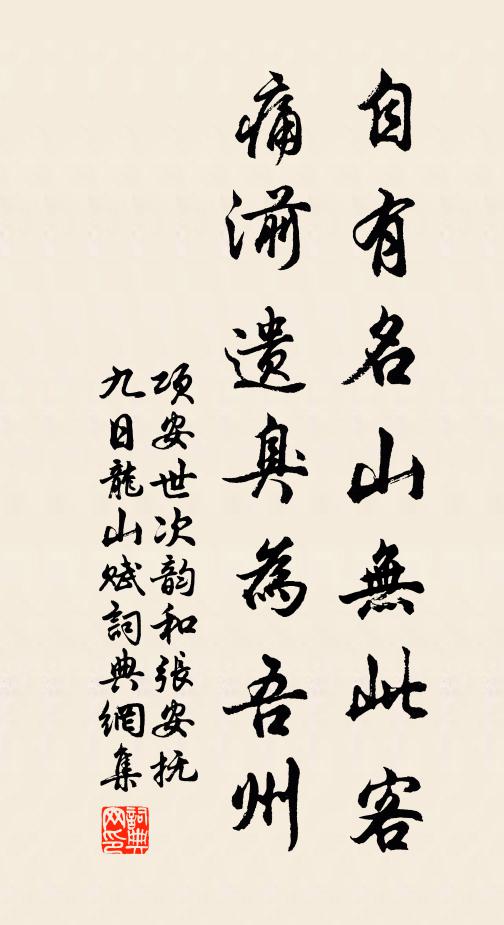 自有名山無此客
痛湔遺臭為吾州
項安世次韵和張安抚
九日龍山赋詞典網集
詞典
网印